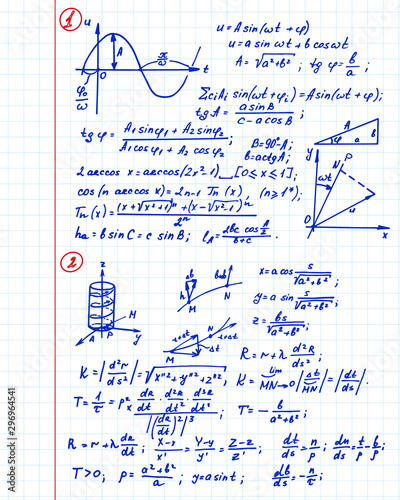 1
u
u = A sin(ωt + φ)
u = a sin ωt + b cos ωt
A = √a²+b² ; tg φ = b/a ;
A
π/ω
t
φ₀/ω
O
Σᵢ Aᵢ sin(ωt+φᵢ) = A sin(ωt+φ);
tg A = a sin B / c − a cos B ;
tg φ = A₁ sin φ₁ + A₂ sin φ₂ / A₁ cos φ₁ + A₂ cos φ₂
B = 90° - A;
b = a ctg A;
A
φ
a
b
2 arccos x = arccos(2x²-1) [0 ≤ x ≤ 1];
cos(n arccos x) = 2n-1 Tn(x), (n ≥ 1*);
Tn(x) = (x + √x²+1)ⁿ + (x - √x²-1)ⁿ / 2ⁿ
ha = b sin C = c sin B; lA = 2bc cos A/2 / b+c .
y
N
P
ωt
u
O
x
2
z
A
P
M
y
h
M
N
x = a cos s/√a²+b² ;
y = a sin s/√a²+b² ;
z = bs/√a²+b² ;
M
N
Δt
R = r + λ dR/ds ;
K = |d²r/ds²| = √x''² + y''² + z''² , K = lim MN→0 |Δt/MN| = |dt/ds| .
T = 1/τ = ρ² dR/dt d²R/dt² d³R/dt³ / |(dR/dt)²|³ ; T = - b/a²+b² ;
R = r + λ dR/dt ; X-x/x' = Y-y/y' = Z-z/z' ; dt/ds = n/ρ ; dn/ds = t/τ - b/ρ ;
T > 0; ρ = a²+b²/a ; y = a sin t ; db/ds = - n/τ ;
Adobe Stock
#296964541